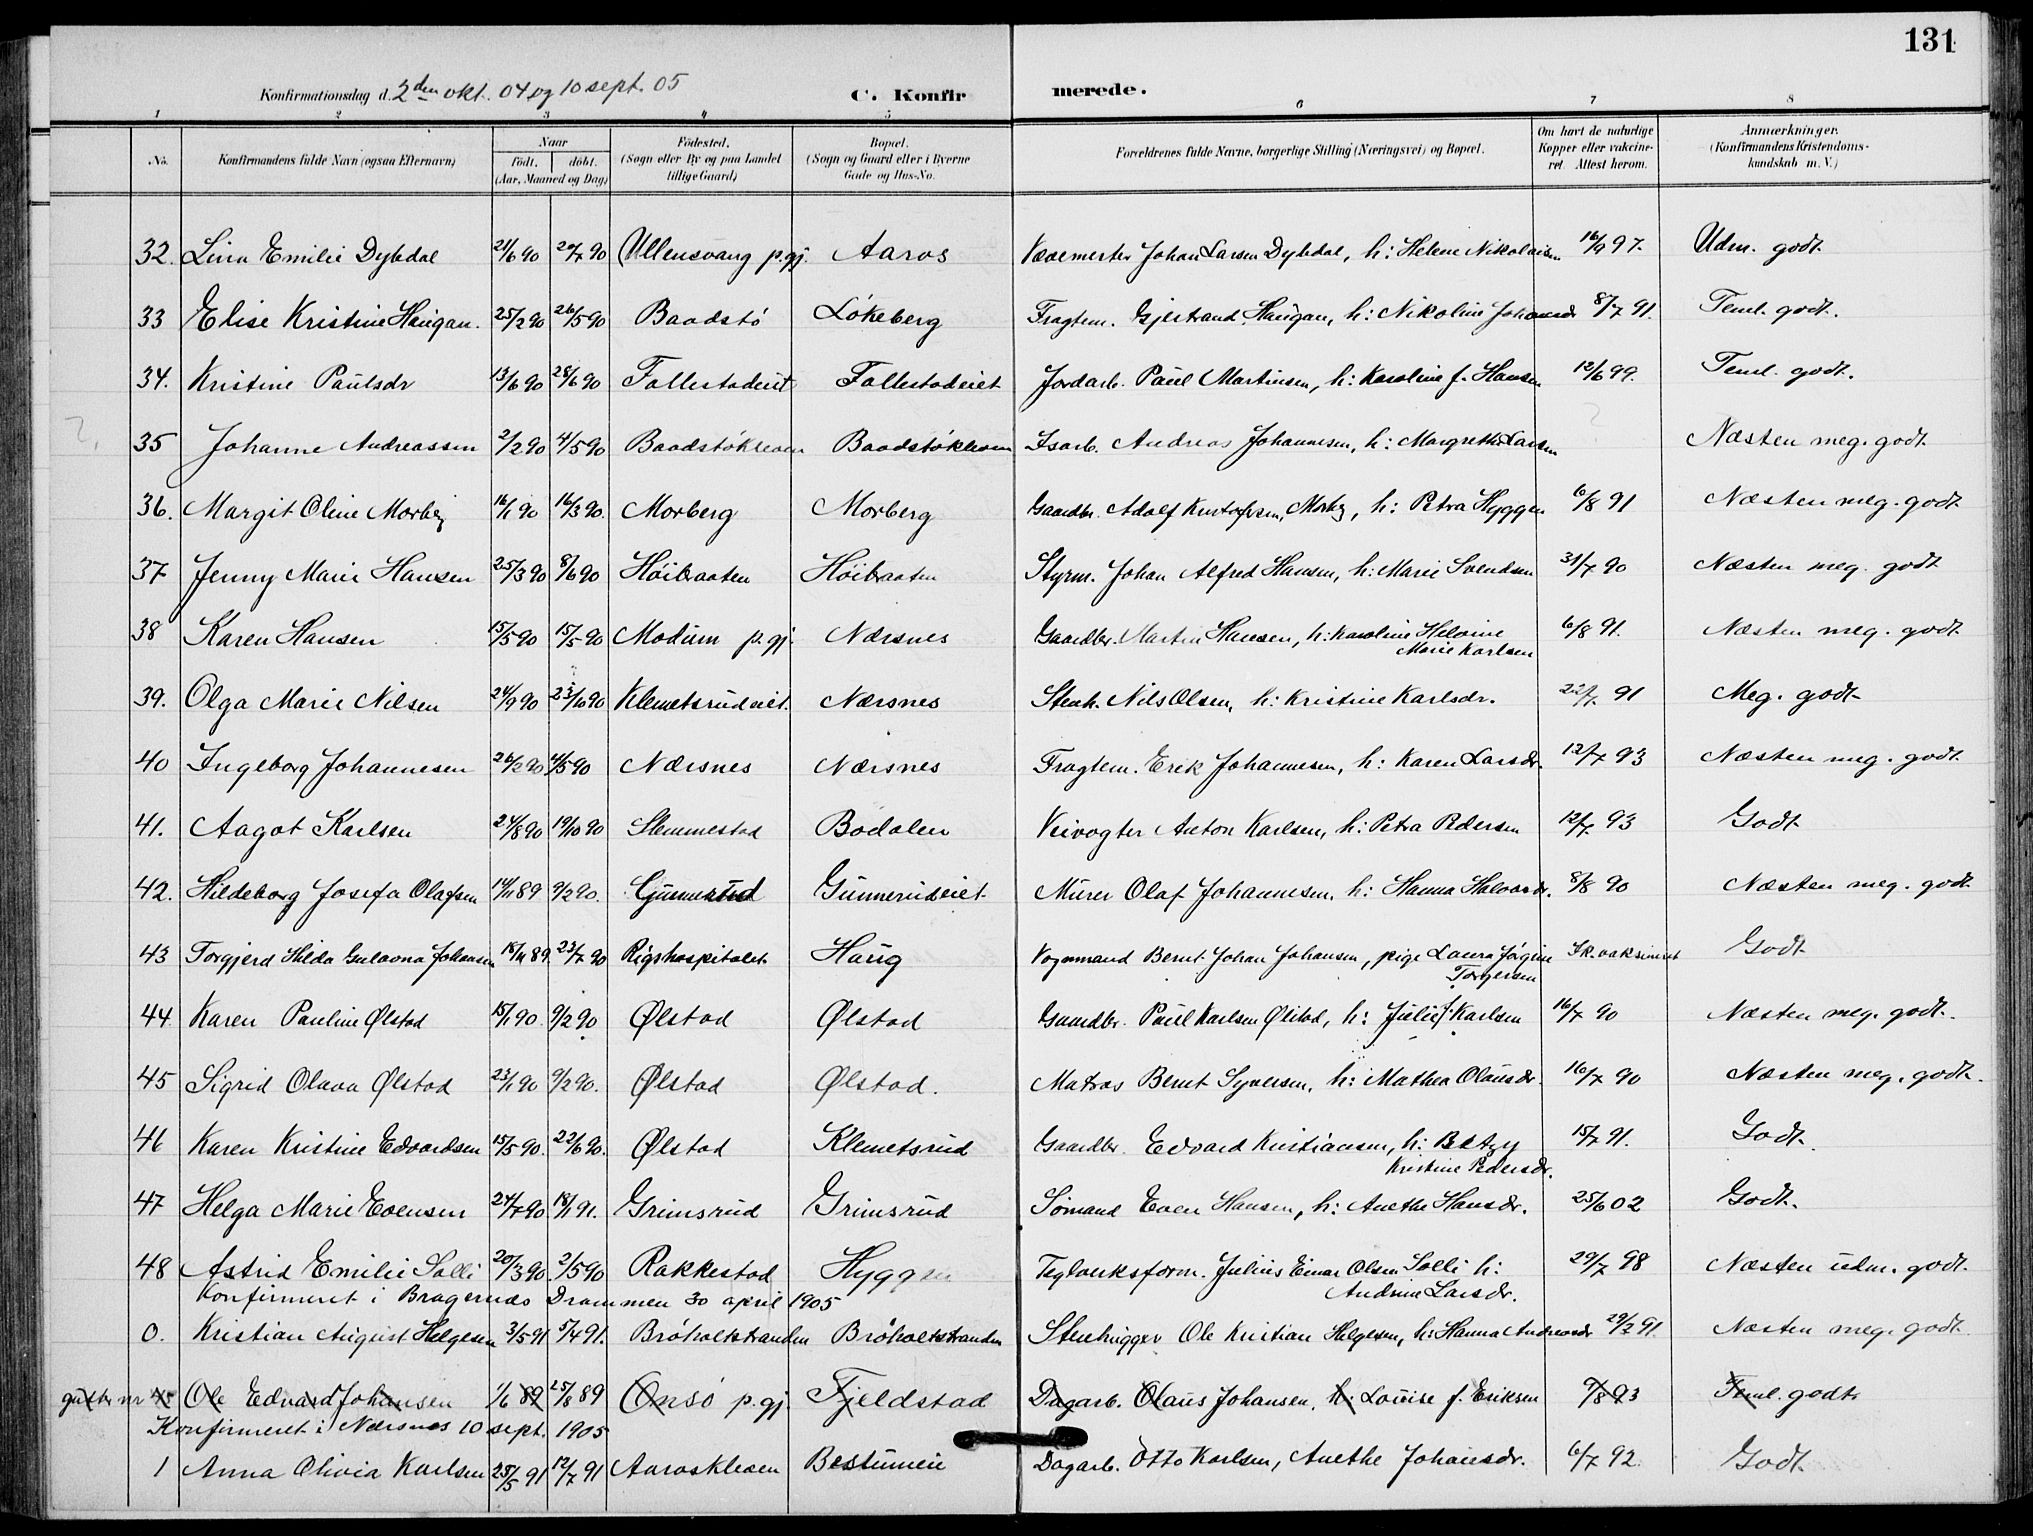 131
Konfirmationsdag d. 2den okt. 04 og 10 sept. 05 C. Konfirmerede.
1 2 3 4 5 6 7 8
No. Konfirmandens fulde Navn (ogsaa Efternavn) Naar født. døbt. (Aar, Maaned og Dag) Fødested. (Sogn eller By og paa Landet tillige Gaard) Bopæl. (Sogn og Gaard eller i Byerne Gade og Hus-No. Forældrenes fulde Navne, borgerlige Stilling (Næringsvei) og Bopæl. Om havt de naturlige Kopper eller vakcineret. Attest herom. Anmærkninger. (Konfirmandens Kristendomskundskab m. V.)
32. Lina Emilie Dybdal 21/6 90 20/7 90 Ullensvang p.gj. Aaros Vævemester Johan Larsen Dybdal, h: Helene Nikolaisen 16/9 97. Udm. godt
33 Elise Kristine Haugan. 25/2 90 26/5 90 Baadstø Løkeberg Fragtem. Gjertrand Haugan, h: Nikoline Johansdr 8/7 91. Teml. godt.
34. Kristine Paulsdr 13/6 90 28/6 90 Fallestadeiet Fallestadeiet Jordarb. Paul Martinsen, h: Karoline f. Hansen 12/6 99. Teml. godt.
35 Johanne Andreassen 2/2 90 4/5 90 Baadstøkleven Baadstøkleven Isarb. Andreas Johannesen, h: Margrethe Larsen ? Næsten meg. godt
36. Margit Oline Morbg 16/1 90 16/3 90. Morberg Morberg Gaardbr. Adolf Kristofersen, Morbg, h: Petra Hyggen 6/8 91 Næsten meg. godt
37 Jenny Marie Hansen 25/3 90 8/6 90 Høibraaten Høibraaten Styrm. Johan Alfred Hansen, h: Marie Svendsen 31/7 90 Næsten meg. godt
38 Karen Hansen 15/5 90 15/5 90 Modum p.gj. Nærsnes Gaardbr. Martin Hansen, h: Karoline Heloine 6/8 91. Næsten meg. godt
Marie Karlsen
39. Olga Marie Nilsen 24/9 90 23/10 90 Klemetsrudeiet. Nærsnes Stenh. Nils Olsen, h: Kristine Karlsdr. 22/7 91 Meg. godt
40 Ingeborg Johannesen 26/2 90 4/5 90 Nærsnes Nærsnes Fragtem. Erik Johannesen, h: Karen Larsdr. 12/7 93 Næsten meg. godt
41. Aagot Karlsen 24/8 90 19/10 90 Slemmestad Bødalen Veivogter Anton Karlsen, h: Petra Pedersen 12/7 93 Godt
42. Hildeborg Josefa Olafsen 14/11 89 9/2 90. Gunnerud Gunnerudeiet Murer Olaf Johannesen, h: Hanna Halvordr. 8/8 90 Næsten meg. godt
43 Torgjerd Hilda Gulaona Johansen 18/11 89. 23/7 90 Rigshospitalet Haug Vognmand Bernt Johan Johansen, pige Laura Jørgine Sk. vaksineret Godt
Torgersen
44. Karen Pauline Ølstad 15/1 90. 9/2 90 Ølstad Ølstad Gaardbr. Paul Karlsen Ølstad, h: Julie f. Karlsen 16/7 90 Næsten meg. godt.
45 Sigrid Olava Ølstad 23/1 90 9/2 90. Ølstad Ølstad. Matros Bernt Syversen, h: Mathea Olausdr. 16/7 90 Næsten meg. godt.
46 Karen Kristine Edvardsen 15/5 90. 22/6 90. Ølstad Klemetsrud Gaardbr. Edvard Kristiansen, h: Betzy 15/7 91. Godt.
Kristine Pedersdr.
47 Helga Marie Evensen 24/7 90. 18/1 91. Grimsrud Grimsrud Sømand Even Hansen, h: Anethe Hansdr. 25/6 02 Godt.
48 Astrid Emilie Solli 20/3 90. 2/5 90 Rakkestad Hyggen Teglverksform. Julius Einar Olsen Solli h: 29/7 98 Næsten udm. godt.
Andrine Larsdr.
Konfirmeret i Bragernæs Drammen 30 april 1905
0. Kristian August Helgesen 3/5 91 5/4 91. Brøholtstranden Brøholtstranden Stenhugger Ole Kristian Helgesen, h: Hanna Andreasdr 29/7 91. Næsten meg. godt
gutter nr 45 Ole Edvard Johansen 1/6 89 25/8 89 Onsø p.gj. Fjeldstad Dagarb. Olaus Johansen, h: Louise f. Eriksen 9/8 93 Teml. godt
Konfirmeret i Nærsnes 10 sept. 1905
1 Anna Olivia Karlsen 25/5 91 12/7 91 Aaroskleven Bestumeie Dagarb. Otto Karlsen, Anethe Johansdr. 6/7 92. Godt.